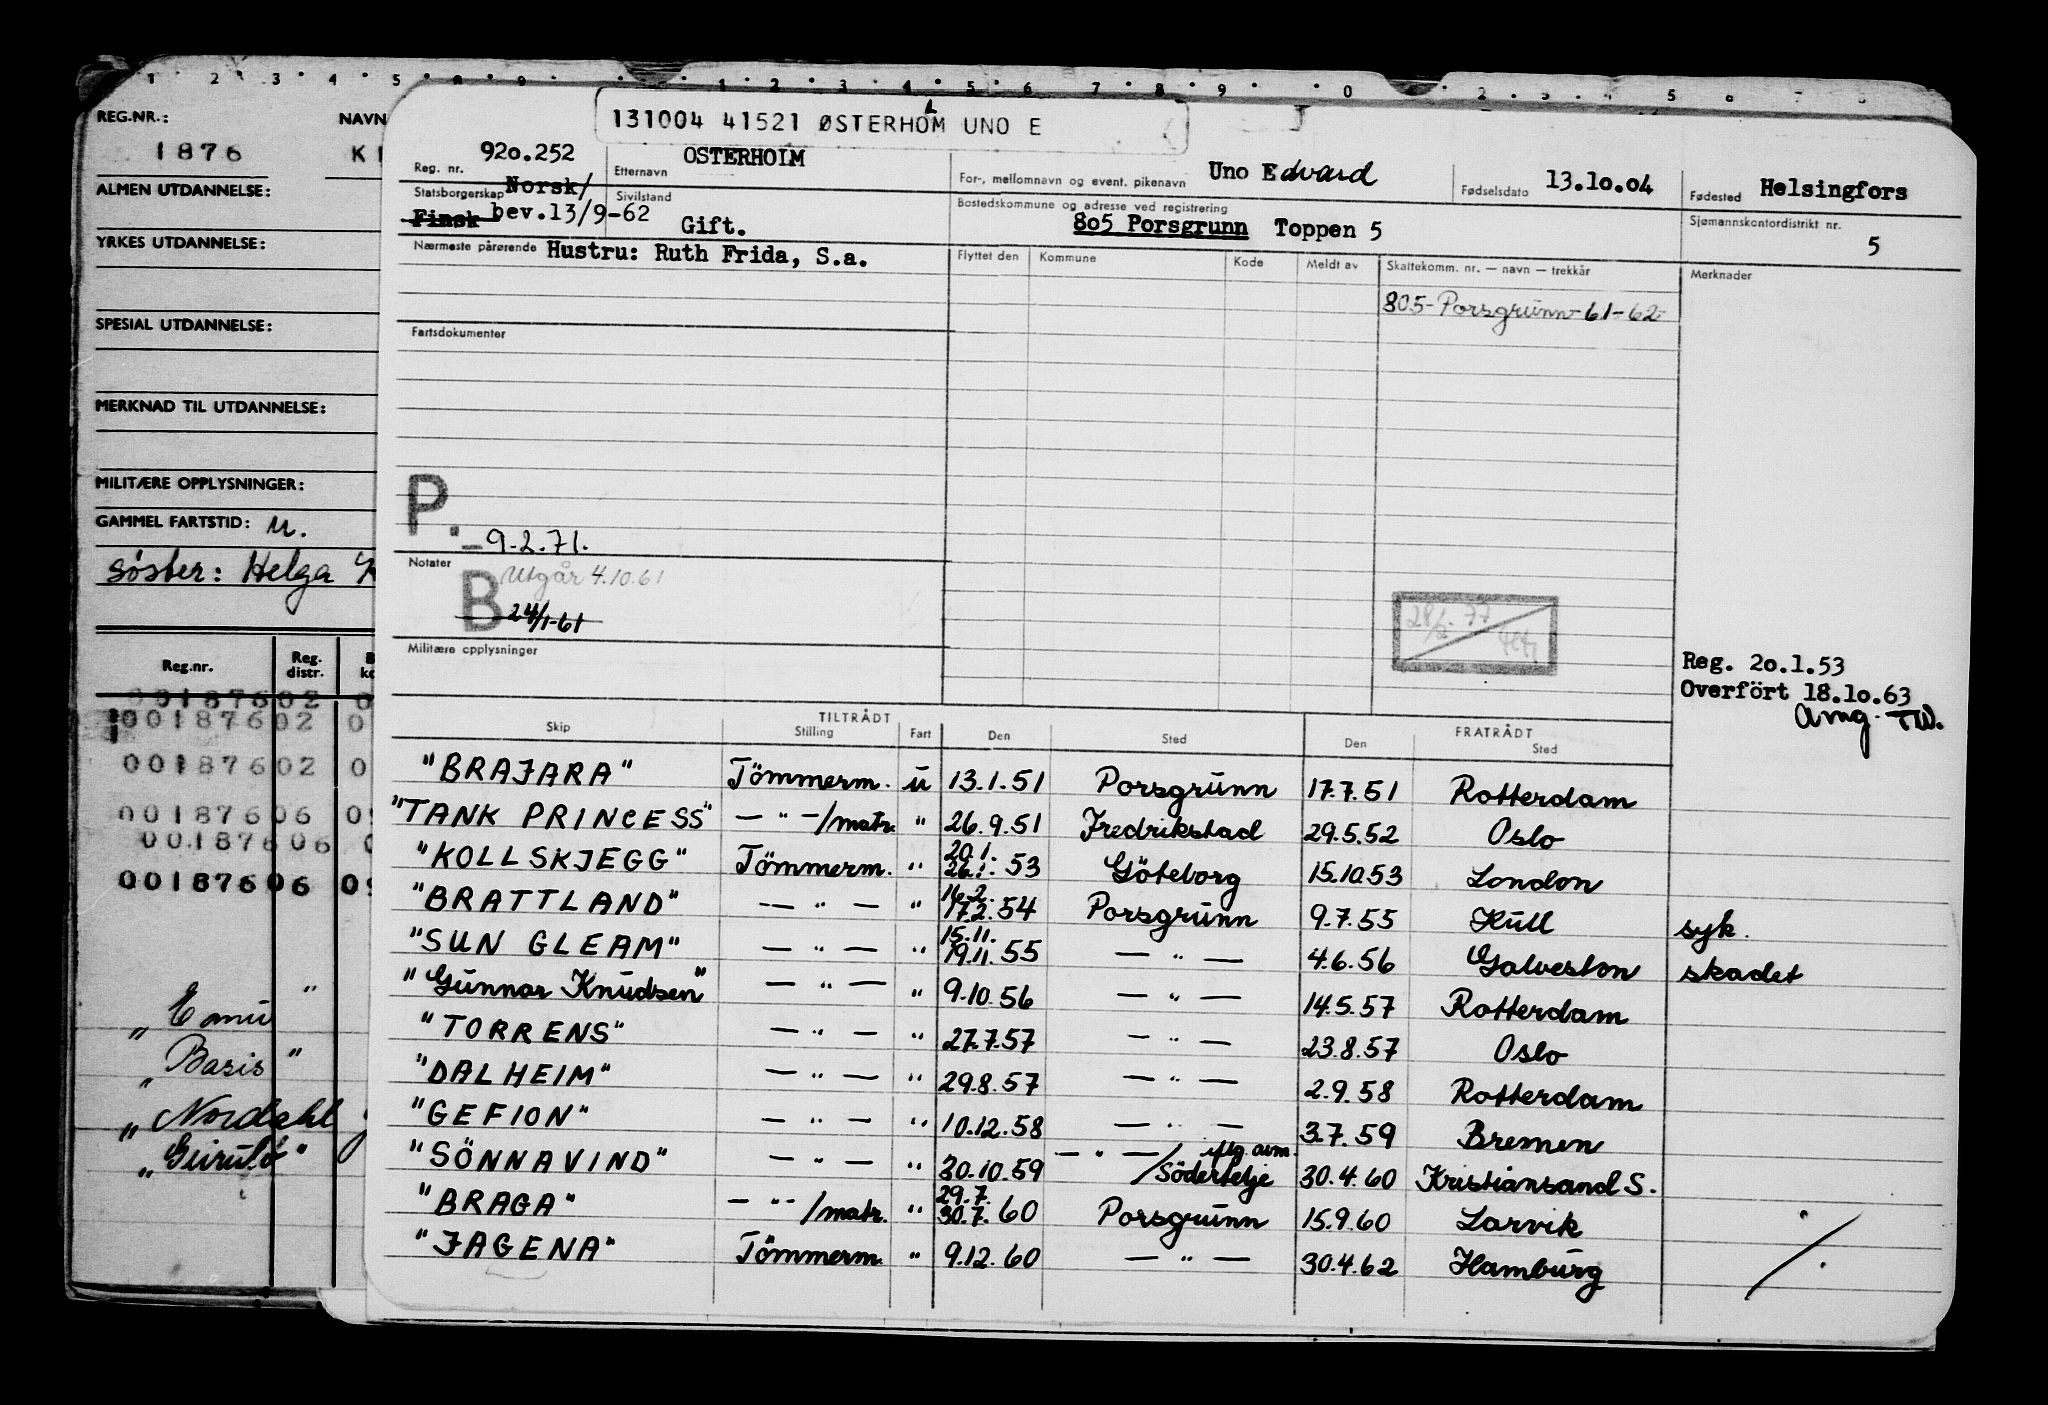 REG.NR.: NAVN
1876
ALMEN UTDANNELSE:
YRKES UTDANNELSE:
SPESIAL UTDANNELSE:
MERKNAD TIL UTDANNELSE:
MILITÆRE OPPLYSNINGER:
GAMMEL FARTSTID: u.
søster: Helga
Reg.nr. Reg. distr.
00187602
00187602
00187602
00187606
00187606
00187606
" Basis "
" Nordahl
131004 41521 ØSTERHOLM UNO E
Reg. nr. 920.252 Etternavn OSTERHOIM For-, mellomnavn og event. pikenavn Uno Edvard Fødselsdato 13.10.04 Fødested Helsingfors
Statsborgerskap Norsk/ Sivilstand Bostedskommune og adresse ved registrering Sjømannskontordistrikt nr.
Finsk bev.13/9-62 Gift. 805 Porsgrunn Toppen 5 5
Nærmeste pårørende Hustru: Ruth Frida, S.a. Flyttet den Kommune Kode Meldt av Skattekomm. nr. — navn — trekkår Merknader
805-Porsgrunn-61-62
Fartsdokumenter
P. 9.2.71.
Notater
B Utgår 4.10.61
24/1-61
28/2-77
Militære opplysninger
Reg. 20.1.53
Overfört 18.10.63
Amg. TW.
TILTRÅDT FRATRÅDT
Skip Stilling Fart Den Sted Den Sted
"BRAJARA" Tömmerm. u 13.1.51 Porsgrunn 17.7.51 Rotterdam
"TANK PRINCESS" — " —/matr. " 26.9.51 Fredrikstad 29.5.52 Oslo
"KOLLSKJEGG" Tömmerm. " 20.1. 26.1.53 Göteborg 15.10.53 London
"BRATTLAND" — " — " 16.2. 17.2.54 Porsgrunn 9.7.55 Hull syk.
"SUN GLEAM" — " — " 15.11. 19.11.55 — " — 4.6.56 Galveston skadet
"Gunnar Knudsen" — " — " 9.10.56 — " — 14.5.57 Rotterdam
"TORRENS" — " — " 27.7.57 — " — 23.8.57 Oslo
"DALHEIM" — " — " 29.8.57 — " — 2.9.58 Rotterdam
"GEFION" — " — " 10.12.58 — " — 3.7.59 Bremen
"SÖNNAVIND" — " — " 30.10.59 — " —/iflg. avm. Södertelje 30.4.60 Kristiansand S.
"BRAGA" — " —/matr. " 29.7. 30.7.60 Porsgrunn 15.9.60 Larvik
"JAGENA" Tömmerm. " 9.12.60 — " — 30.4.62 Hamburg